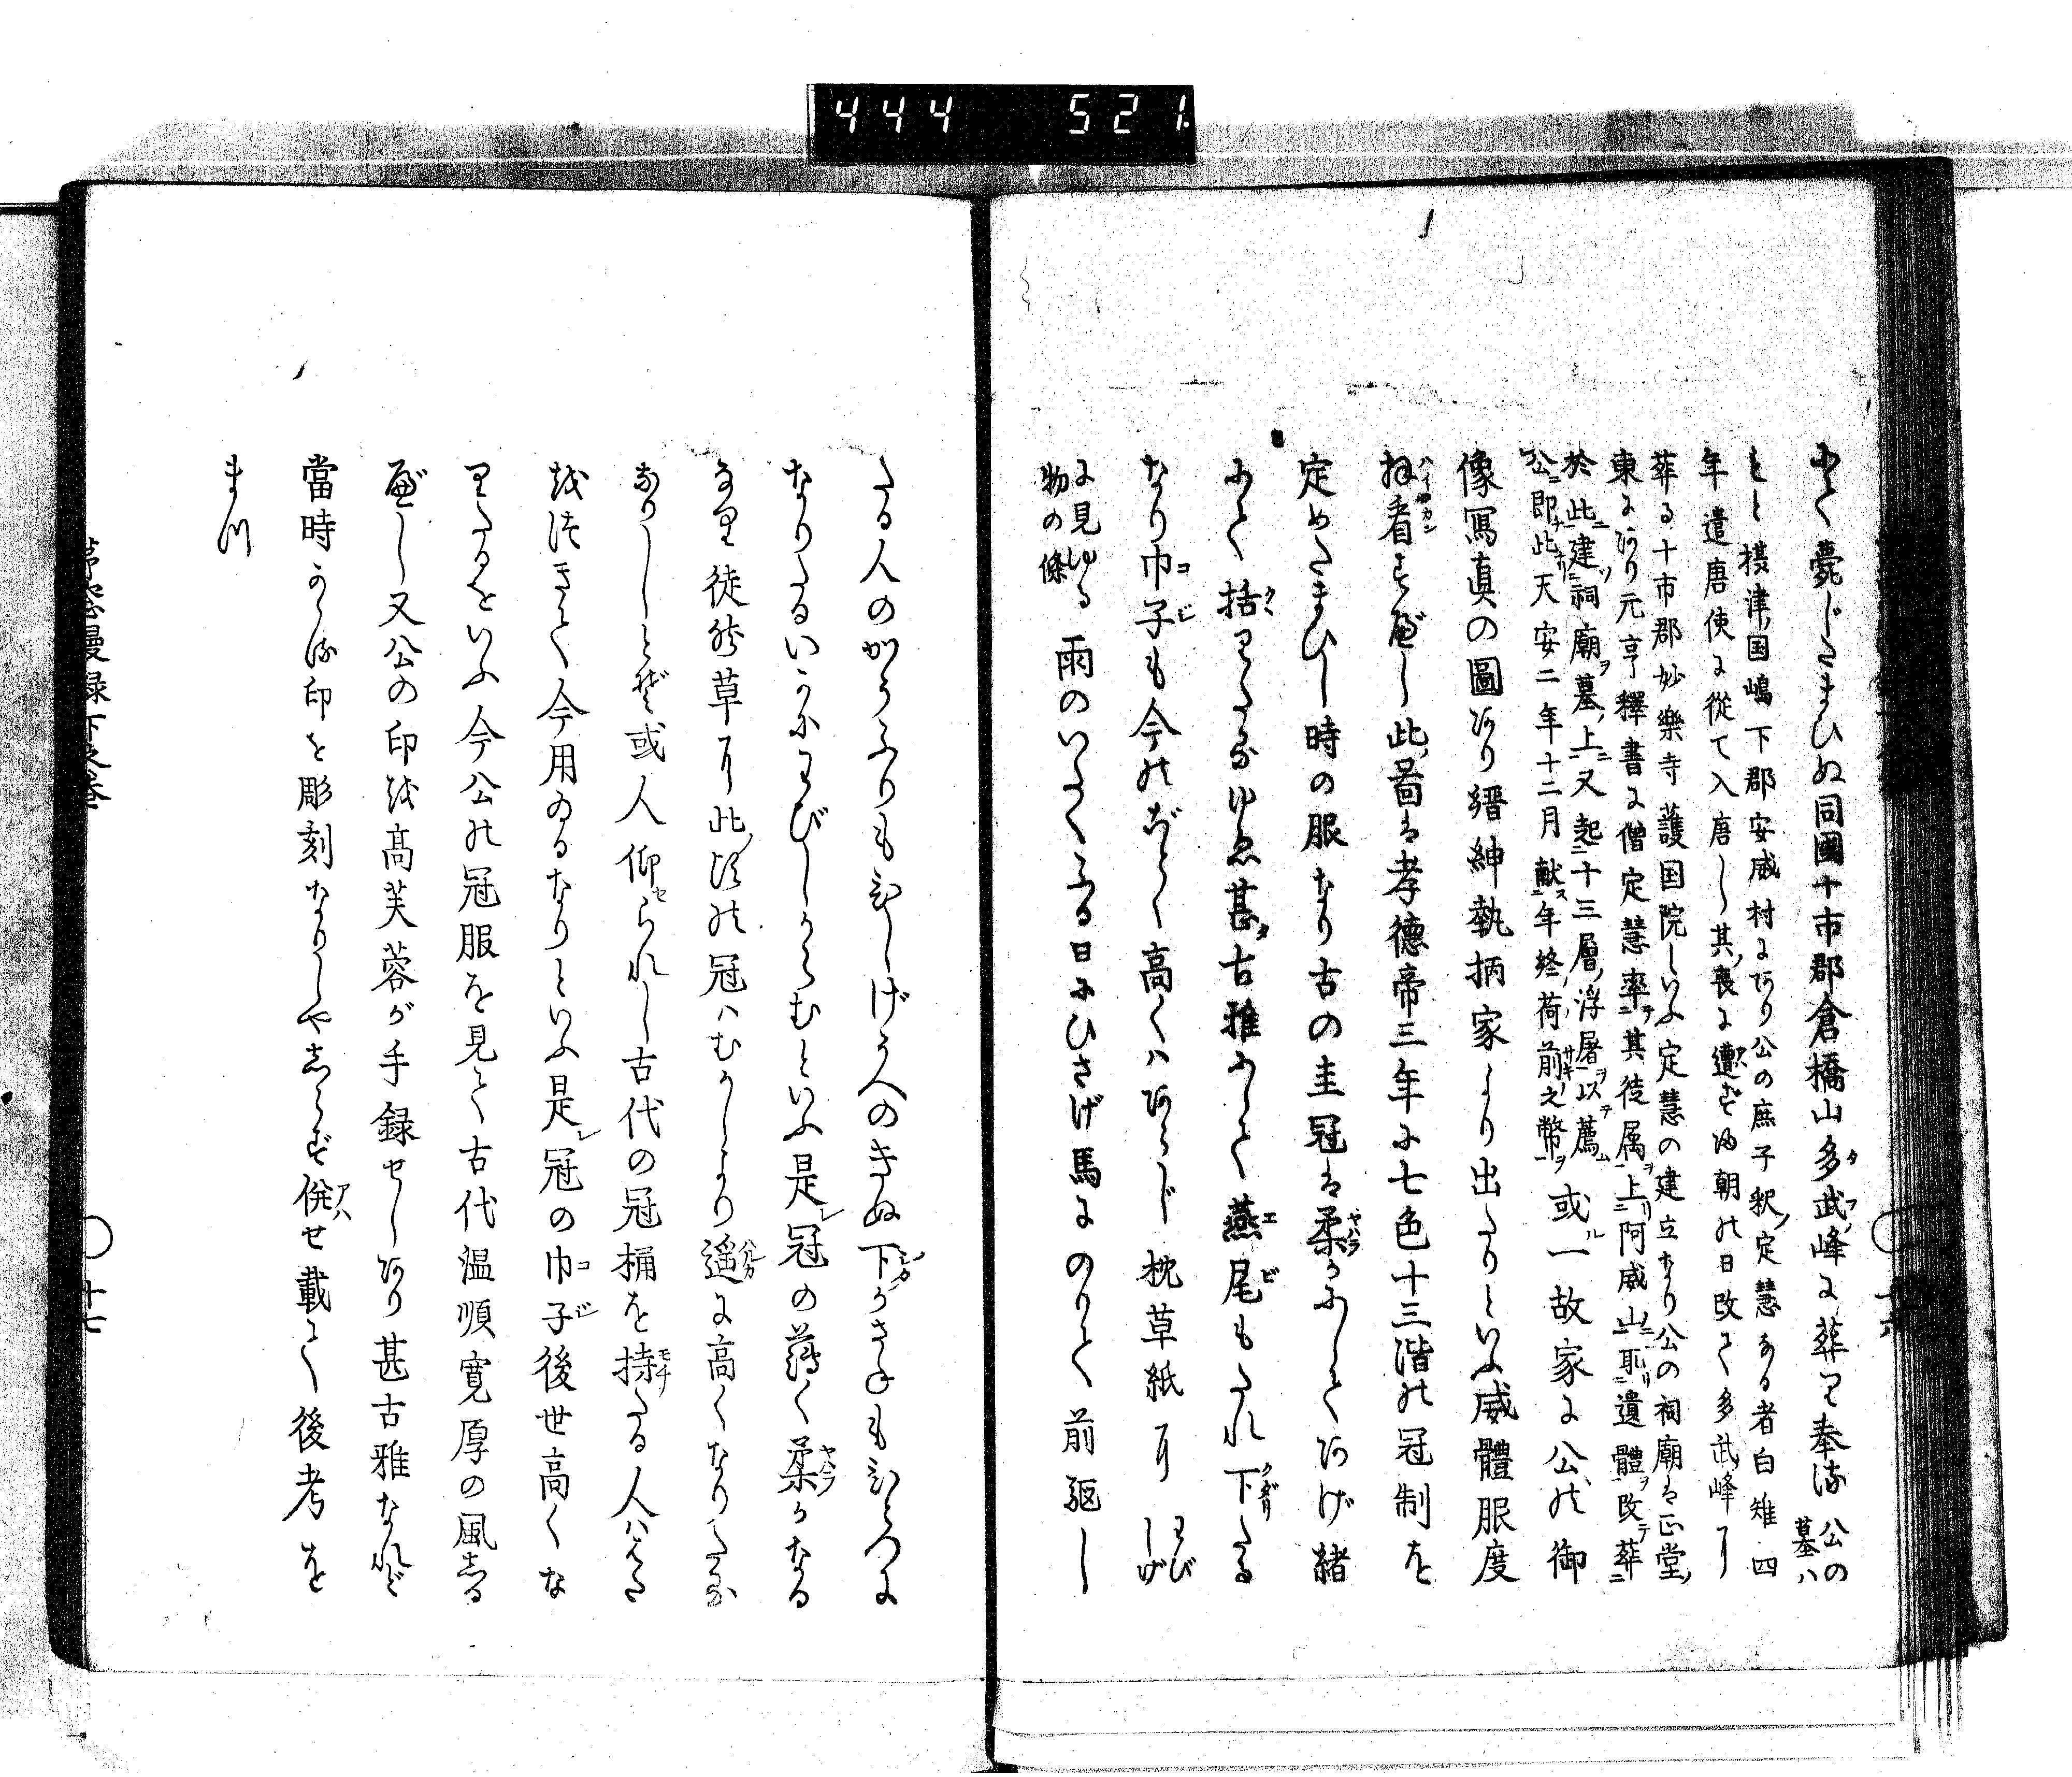 444 521
にて薨じたまひぬ同國十市郡倉橋山多武峰に葬り奉る公の墓ハ
もと摂津国嶋下郡安威村にあり公の庶子釈定慧なる者白雉四
年遣唐使に従て入唐し其喪に遭ず帰朝の日改て多武峰に
葬る十市郡妙樂寺護国院といふ定慧の建立なり公の祠廟は正堂
東にあり元亨釋書に僧定慧率其徒属上阿威山取遺體改葬
於此建祠廟墓上又起十三層浮屠以薦
公即此天安二年十二月献年終荷前之幣或一故家に公の御
像寫真の圖あり縉紳執柄家より出たりといふ威體服度
拝看すべし此圖は孝德帝三年に七色十三階の冠制を
定めたまひし時の服なり古の圭冠は柔かにしてあげ緒
にて括りたるゆゑ甚古雅にして燕尾もたれ下たる
なり巾子も今のごとく高くハあらじ枕草紙にわびしげ
に見ゆる物の條雨のいたくふる日にひさげ馬にのりて前駆し
たる人のかうふりもひしげうへのきぬ下がさねもひとつに
なりたるいかにわびしからむといふ是冠の薄く柔かなる
なり徒然草に此頃の冠ハむかしより遥に高くなりたる
なりしとぞ或人仰られし古代の冠桶を持たる人ハはた
を つぎて今用ゐるなりといふ是冠の巾子後世高くな
りたるをいふ今公の冠服を見て古代温順寛厚の風しる
べし又公の印を高芙蓉が手録せしあり甚古雅なれど
當時かゝる印を彫刻なりしやしらず併せ載て後考を
まつ
漫録下之巻
十七